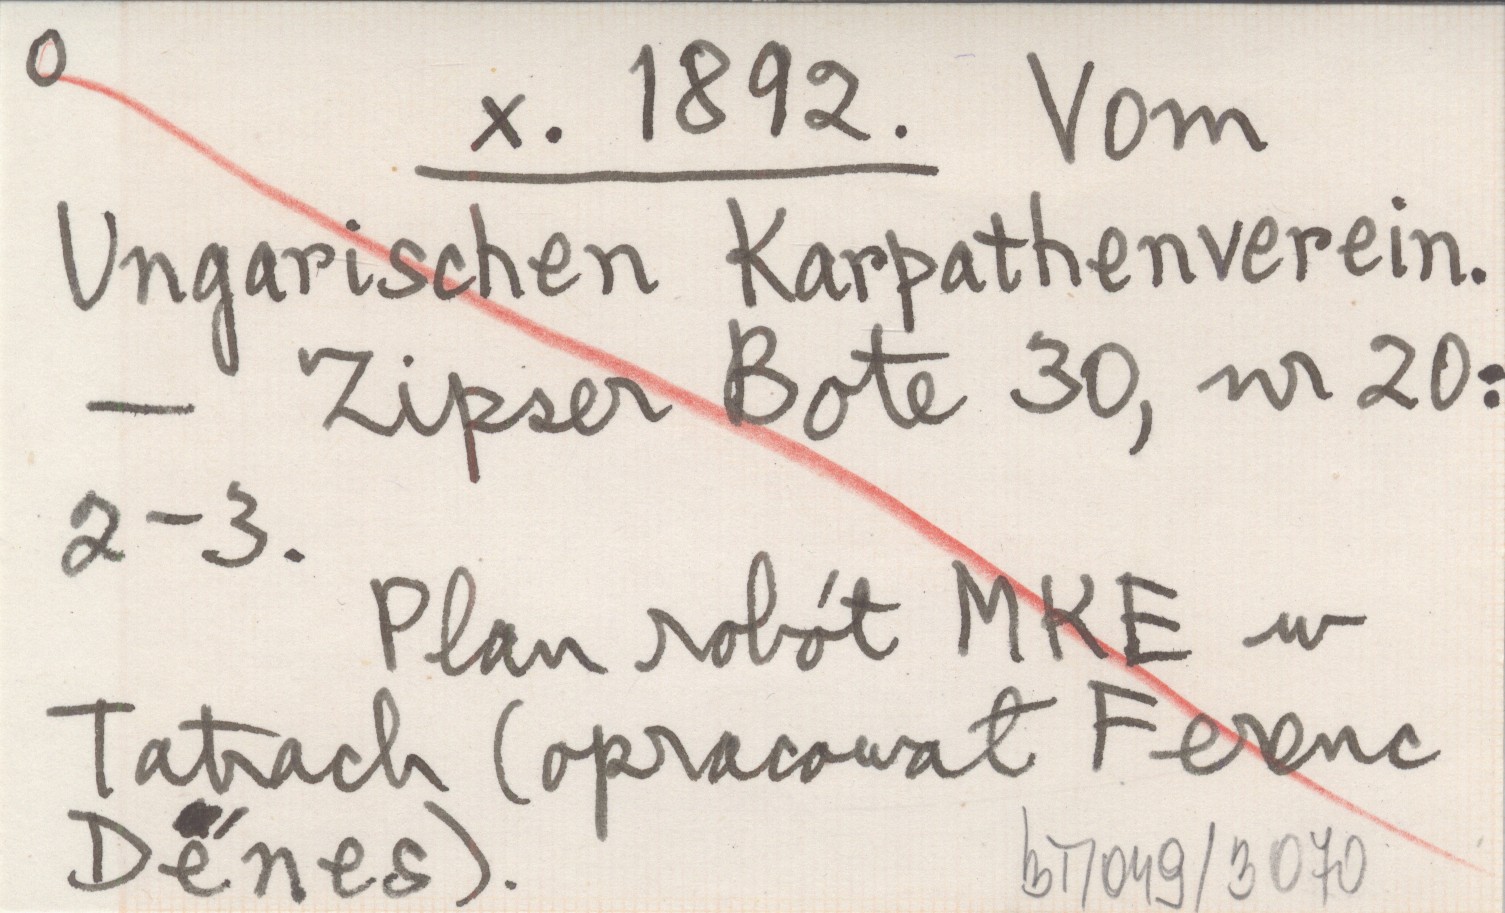 0
x. 1892. Vom
Ungarischen Karpathenverein.
— Zipser Bote 30, nr 20:
2-3.
Plan robót MKE w
Tatrach (opracował Ferenc
Dénes).
bT/049/3070